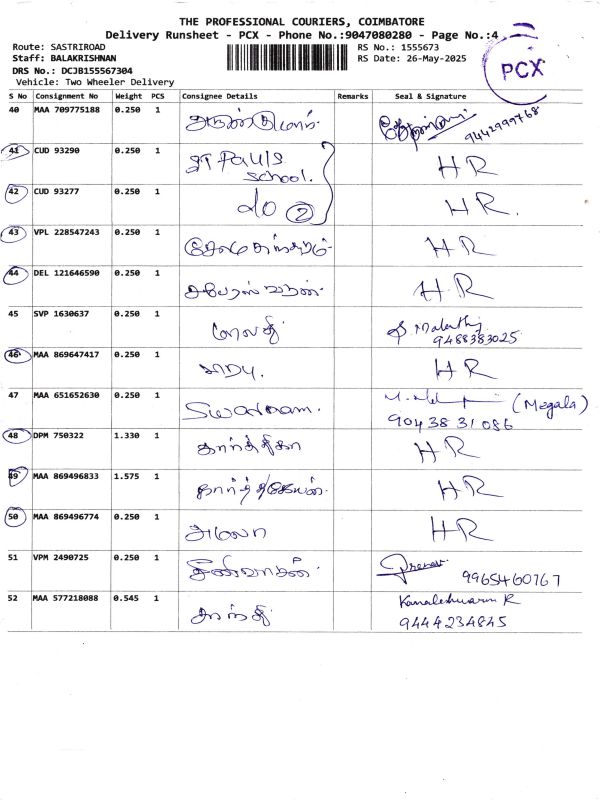 THE PROFESSIONAL COURIERS, COIMBATORE
Delivery Runsheet - PCX - Phone No.:9047080280 - Page No.:4
Route: SASTRIROAD
RS No.: 1555673
Staff: BALAKRISHNAN
RS Date: 26-May-2025
DRS No.: DCJB155567304
PCX
Vehicle: Two Wheeler Delivery
S No Consignment No Weight PCS Consignee Details Remarks Seal & Signature
40 MAA 709775188 0.250 1
9442999768
41 CUD 93290 0.250 1 ST Pauls school. HR
42 CUD 93277 0.250 1 do (2) HR.
43 VPL 228547243 0.250 1 HR
44 DEL 121646590 0.250 1 H.R
45 SVP 1630637 0.250 1 மாலதி Malathy
9488383025
46 MAA 869647417 0.250 1 HR
47 MAA 651652630 0.250 1 Swarnam. (Megala)
90438 31086
48 DPM 750322 1.330 1 கார்த்திகா HR
49 MAA 869496833 1.575 1 கார்த்திகேயன். HR
50 MAA 869496774 0.250 1 அமலா HR
51 VPM 2490725 0.250 1 Pranav
9965460767
52 MAA 577218088 0.545 1 சாந்தி K
9444234845